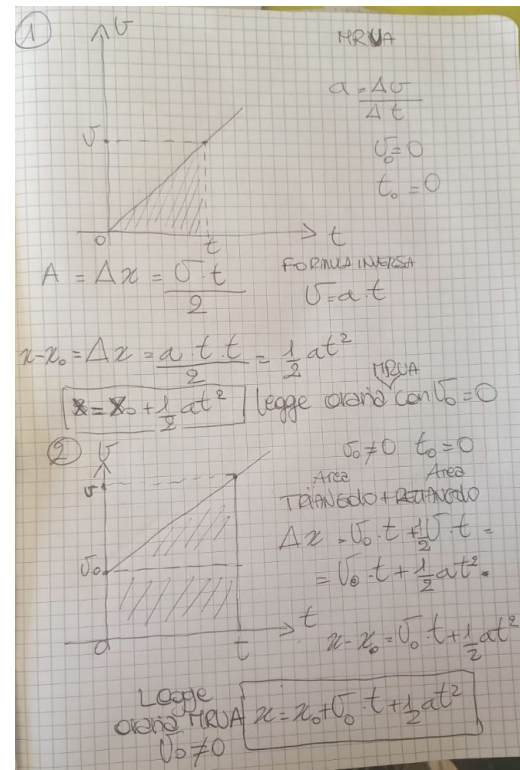 1
v
MRUA
a = Δv/Δt
v
v₀ = 0
t₀ = 0
0 t t
A = Δx = v · t/2
FORMULA INVERSA
v = a · t
x - x₀ = Δx = a · t · t/2 = 1/2 at²
x = x₀ + 1/2 at² legge oraria MRUA con v₀ = 0
2
v
v₀ ≠ 0 t₀ = 0
v
Area Area
TRIANGOLO + RETTANGOLO
v₀
Δx = v₀ · t + 1/2 v · t =
= v₀ · t + 1/2 at².
0 t t
x - x₀ = v₀ · t + 1/2 at²
Legge
oraria MRUA x = x₀ + v₀ · t + 1/2 at²
v₀ ≠ 0